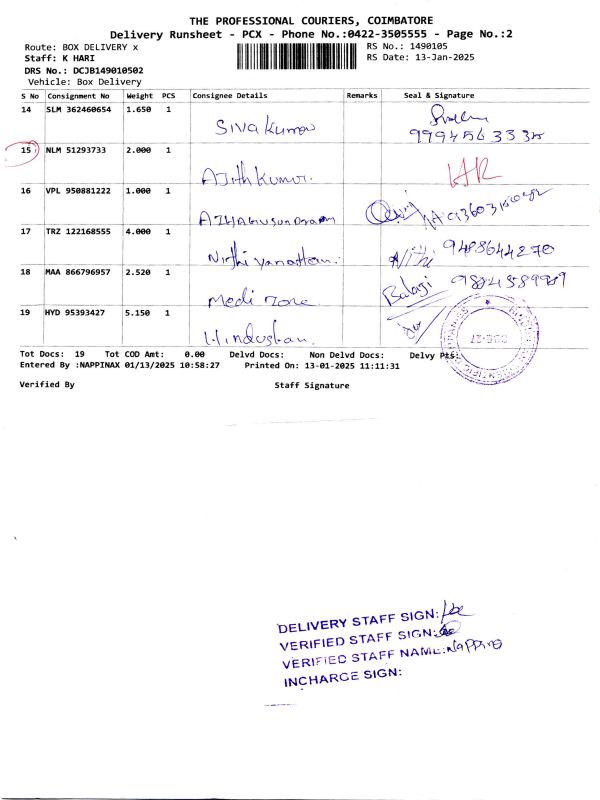 THE PROFESSIONAL COURIERS, COIMBATORE
Delivery Runsheet - PCX - Phone No.:0422-3505555 - Page No.:2
Route: BOX DELIVERY x
RS No.: 1490105
Staff: K HARI
RS Date: 13-Jan-2025
DRS No.: DCJB149010502
Vehicle: Box Delivery
S No Consignment No Weight PCS Consignee Details Remarks Seal & Signature
14 SLM 362460654 1.650 1 Siva Kumar
15 NLM 51293733 2.000 1 Ajith Kumar.
16 VPL 950881222 1.000 1
17 TRZ 122168555 4.000 1 Nithi 9488644270
18 MAA 866796957 2.520 1 Medi Zone Balaji
19 HYD 95393427 5.150 1 Hindusthan.
Tot Docs: 19 Tot COD Amt: 0.00 Delvd Docs: Non Delvd Docs: Delvy Pts:
Entered By :NAPPINAX 01/13/2025 10:58:27 Printed On: 13-01-2025 11:11:31
Verified By Staff Signature
DELIVERY STAFF SIGN:
VERIFIED STAFF SIGN:
VERIFIED STAFF NAME:
INCHARGE SIGN: